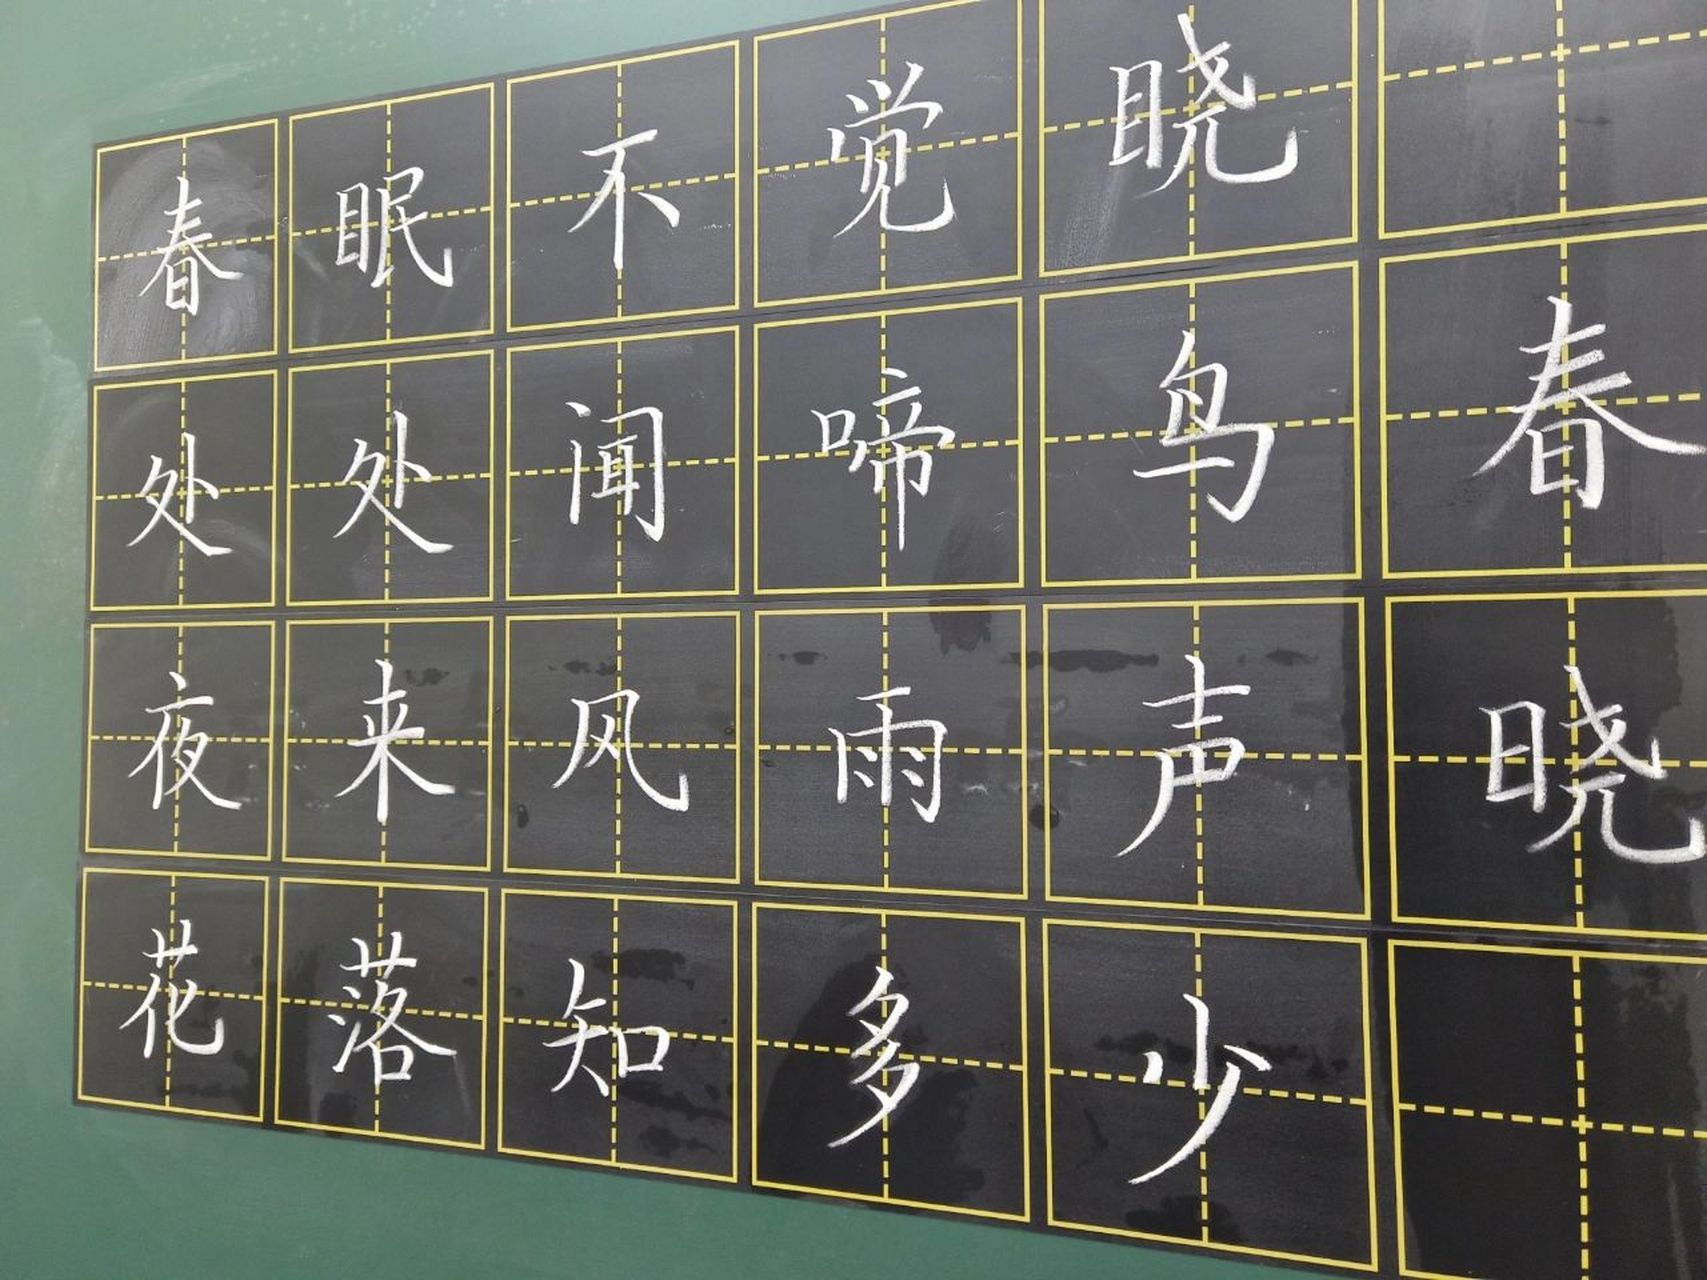 春眠不觉晓
处处闻啼鸟
夜来风雨声
花落知多少
春晓